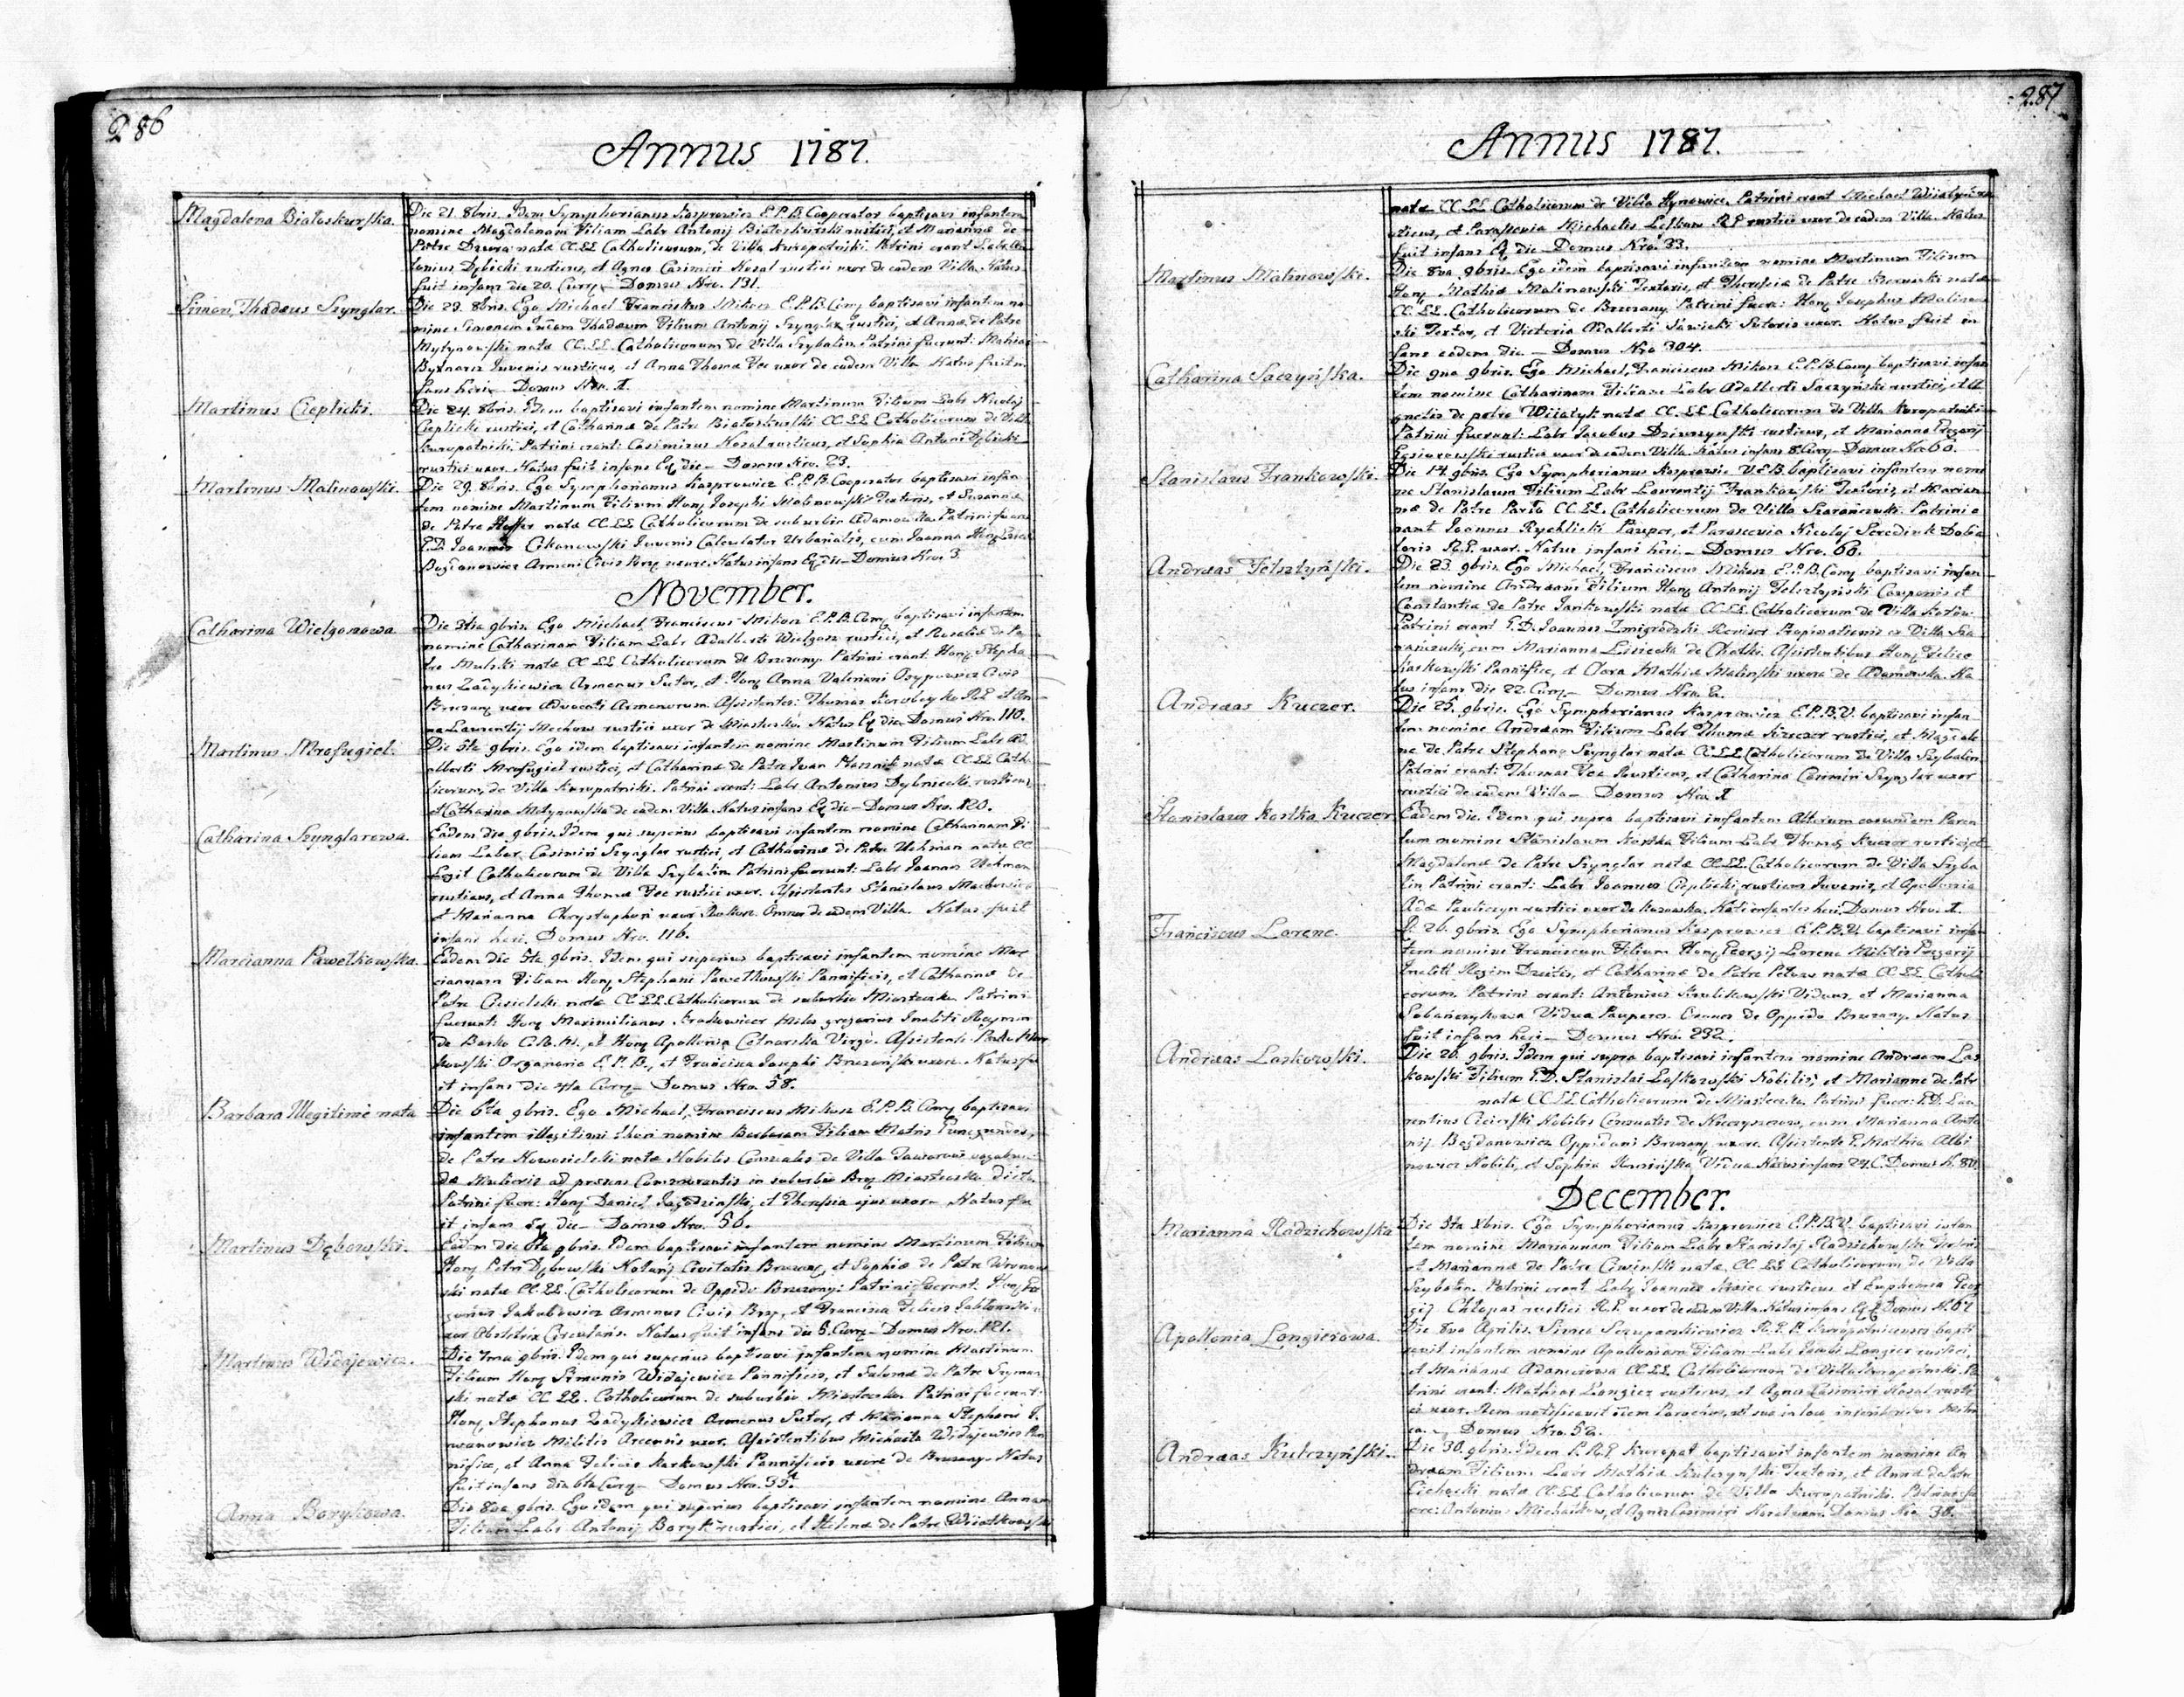 286
Annus 1787.
Magdalena Białoskurska.
Die 21. 8bris. Idem Symphorianus Kasprowicz E.P.B. Cooperator baptisavi infantem
nomine Magdalenam Filiam Labr Antonij Białoskurski rustici, et Mariannæ de
Patre Dziura natæ CC.LL Catholicorum, de Villa Kuropatniki. Patrini erant Labr An
tonius Dębicki rusticus, et Agnes Casimiri Kosal rustici uxor de eadem Villa. Natus
fuit infans die 20. Curr. Domus Nro. 131.
Simon, Thadæus Szynglar.
Die 29. 8bris. Ego Michael Franciskus Mikosz E.P.B. Comm baptisavi infantem no
mine Simonem Thadæum Filium Antonij Szynglar rustici, et Annæ de Patre
Mytynowski natæ CC.LL. Catholicorum de Villa Szybalin Patrini fuerunt: Mathias
Juvenis rusticus, et Anna Thomæ Fec uxor de eadem Villa Natus fuit in
fans heri. Domus Nro. 1.
Martinus Cieplicki.
Die 24. 8bris. Idem baptisavi infantem nomine Martinum Filium Labr Nicolaj
Cieplicki rustici, et Catharinæ de Patre Białoskurski CC LL Catholicorum de Villa
Kuropatniki. Patrini erant: Casimirus Kosal rusticus, et Sophia Antoni Dębicki
rustici uxor. Natus fuit infans Eq die. Domus Nro. 23.
Martinus Malinowski.
Die 29. 8bris. Ego Symphorianus Kasprowicz E.P.B. Cooperator baptisavi infan
tem nomine Martinum Filium Hon Josephi Malinowski Textoris, et Susannæ
de Patre Hoffer natæ CC LL Catholicorum de suburbio Adamowka Patrini fuere
P.D. Joannes Cekanowski Juvenis Calculator Urbarialis, cum Joanna
Bogdanowicz Armeni Civis uxore. Natus infans Eq die. Domus Nro. 3
November.
Catharina Wielgoszowa
Die 3tia 9bris. Ego Michael, Franciscus Mikosz E.P.B. Comm baptisavi infantem
nomine Catharinam Filiam Labr Adalberti Wielgosz rustici, et Rosaliæ de Pa
tre Mulski natæ CC LL Catholicorum de Brzezany. Patrini erant. Hon Stepha
nus Zadykiewicz Armenus Sutor, et Hon Anna Valeriani Osypowicz Civis
Brzezan uxor Advocati Armenorum. Assistentes: Thomas R.P. et An
na Laurentij Mechow rustici uxor de Miasteczko. Natus Eq die. Domus Nro. 110.
Martinus Mrofugiel.
Die 5ta 9bris. Ego idem baptisavi infantem nomine Martinum Filium Labr Ad
alberti Mrofugiel rustici, et Catharinæ de Patre Juan natæ CC LL Catho
licorum, de Villa Kuropatniki. Patrini erant: Labr Antonius Dybnicki rusticus,
et Catharina Motynowska de eadem Villa. Natus infans Eq die. Domus Nro. 120.
Catharina Szynglarowa.
Eadem die 9bris. Idem qui superius baptisavi infantem nomine Catharinam Fi
liam Labor. Casimiri Szynglar rustici, et Catharinæ de Patre Uchman natæ CC
Legit Catholicorum de Villa Szybalin Patrini fuerunt: Labr Joannes Uchman
rusticus, et Anna Thomæ Fec rustici uxor. Assistentes Stanislaus
et Marianna Chrystophori uxor. Omnes de eadem Villa. Natus fuit
infans heri. Domus Nro. 116.
Marcianna Pawełkowska.
Eadem die 5ta 9bris. Idem qui superius baptisavi infantem nomine Mar
ciannam Filiam Hon Stephani Pawełkowski Pannificis, et Catharinæ de
Patre Ciesielski natæ CC.LL. Catholicorum de suburbio Miasteczko Patrini
fuerunt: Hon Maximilianus Miles gregarius Incliti Regimin
de Barko C.R.M., et Hon Apollonia Cetnarska Virgo. Assistente
kowski Organario E.P.B., et Francisca Josephi Brzezański uxore. Natus fu
it infans die 4ta Curr. Domus Nro 58.
Barbara Illegitimè nata
Die 6ta 9bris. Ego Michael, Franciscus Mikosz E.P.B. Comm baptisavi
infantem illegitimi thori nomine Barbaram Filiam Matris Cunegundis,
de Patre Nowosielski natæ Nobilis de Villa vagabun
dæ Mulieris ad præsens Commorantis in suburbio Brzez Miasteczko dicto
Patrini fuere: Hon Daniel et Theresia ejus uxor. Natus fu
it infans Eq die. Domus Nro. 56.
Martinus Dębowski.
Eadem die 6ta 9bris. Idem baptisavi infantem nomine Martinum Filium
Hon Petri Dębowski Notarij Civitatis Brzezan, et Sophiæ de Patre Wronow
ski natæ CC.LL. Catholicorum de Oppido Brzezany. Patrini fuerunt. Hon Gre
gorius Jakubowicz Armenus Civis Brzez, et Francisca Felicis Jabłonowski
xor Obstetrix Circularis. Natus fuit infans die 5. Curr. Domus Nro. 121.
Martinus Widajewicz.
Die 7ma 9bris. Idem qui superius baptisavi infantem nomine Martinum
Filium Hon Simonis Widajewicz Pannificis, et Salomæ de Patre Szyman
ski natæ CC LL. Catholicorum de suburbio Miasteczko Patrini fuerunt:
Hon Stephanus Zadykiewicz Armenus Sutor, et Marianna Stephani I.
wanowicz Militis Arcensis uxor. Assistentibus Michaele Widajewicz Pan
nifice, et Anna Felicis Markowski Pannificis uxore de Brzezany. Natus
fuit infans die 6ta Curr. Domus Nro. 35.
Anna Borykowa.
Die 8va 9bris. Ego idem qui superius baptisavi infantem nomine Annam
Filiam Labr Antonij Boryk rustici, et Helenæ de Patre Wiatkowski
287
Annus 1787.
natæ CC LL Catholicorum de Villa Hynowice. Patrini erant Michael
sticus, et Parascevia Michaelis Leskow R.G. rustici uxor de eadem Villa. Natus
fuit infans Eq die. Domus Nro. 33.
Martinus Malinowski.
Die 8va 9bris. Ego idem baptisavi infantem nomine Martinum Filium
Hon Mathiæ Malinowski Textoris, et Theresiæ de Patre natæ
CC.LL. Catholicorum de Brzezany. Patrini fuere: Hon Josephus Malinow
ski Textor, et Victoria Adalberti Sawicki Sutoris uxor. Natus fuit in
fans eadem die. Domus Nro 304.
Catharina Saczyńska.
Die 9na 9bris. Ego Michael, Franciscus Mikosz E.P.B. Comm baptisavi infan
tem nomine Catharinam Filiam Labr Adalberti Saczyński rustici, et A
gnetis de patre Wiiatyk natæ CC.LL Catholicorum de Villa Kuropatniki
Patrini fuerunt: Labr Jacobus Dziurzyński rusticus, et Marianna Gregorij
Gąsiorowski rustici uxor de eadem Villa. Natus infans 8 Curr. Domus Nro 60.
Stanislaus Frankowski.
Die 14. 9bris. Ego Symphorianus Kasprowicz V.E.B. baptisavi infantem nomi
ne Stanislaum Filium Labr Laurentij Frankowski Textoris, et Marian
næ de Patre CC.LL. Catholicorum de Villa Szarańczuki. Patrini e
rant Joannes Rychlicki Pauper, et Parascevia Nicolaj Seredink Dolia
toris R.G. uxor. Natus infans heri. Domus Nro. 66.
Andræas Felsztyński.
Die 23. 9bris. Ego Michael, Franciscus Mikosz E.P.B. Comm baptisavi infan
tem nomine Andræam Filium Hon Antonij Felsztyński Cauponis et
Constantiæ de Patre Jankowski natæ CC.LL. Catholicorum de Villa Kotów
Patrini erant P.D. Joannes Zmigrodzki Revisor Propinationis ex Villa Sza
rańczuki, cum Marianna Lisiecka de Chatki. Assistentibus Hon Felice
Markowski Pannifice, et Clara Mathiæ Malinski uxore de Adamowka. Na
tus infans die 22. Curr. Domus Nro. 2.
Andræas Kuczer.
Die 25. 9bris. Ego Symphorianus Kasprowicz E.P.B.V. baptisavi infan
tem nomine Andræam Filium Labr Thomæ Kuczer rustici, et Magdale
næ de Patre Stephano Szynglar natæ CC.LL Catholicorum de Villa Szybalin
Patrini erant: Thomas Fec Rusticus, et Catharina Casimiri Szynglar uxor
rustici de eadem Villa. Domus Nro 1
Stanislaus Kostka Kuczer.
Eadem die. Idem qui supra baptisavi infantem Alterum eorundem Paren
tum nomine Stanislaum Kostka Filium Labr Thomæ Kuczer rustici, et
Magdalenæ de Patre Szynglar natæ CC.LL. Catholicorum de Villa Szyba
lin Patrini erant: Labr Joannes Cieplicki rusticus Juvenis, et Apollonia
Adæ Pauliczyn rustici uxor de Nati infantes heri. Domus Nro. 1.
Franciscus Lorenc.
D. 26. 9bris. Ego Symphorianus Kasprowicz E.P.B.V. baptisavi infan
tem nomine Franciscum Filium Hon Georgij Lorenc Militis Gregarij
Incliti Regim et Catharinæ de Patre Peters natæ CC.LL. Catholi
corum. Patrini erant: Antonius Krulikowski Viduus, et Marianna
Sobańczykowa Vidua Pauperes. Omnes de Oppido Brzezany. Natus
fuit infans heri. Domus Nro. 232.
Andræas Laskowski.
Die 26. 9bris. Idem qui supra baptisavi infantem nomine Andræam Las
kowski Filium P.D. Stanislai Laskowski Nobilis, et Mariannæ de Patr
natæ CC.LL Catholicorum de Miasteczko. Patrini fuere: P.D. Lau
rentius Cicierski Nobilis cum Marianna Anto
nij Bogdanowicz Oppidani Brzezan uxore. Assistente P. Mathia Albi
nowicz Nobili, et Sophia Vidua. Natus infans 24. C. Domus N. 80.
December.
Marianna Radzichowska
Die 3tia Xbris. Ego Symphorianus Kasprowicz E.P.B.V. baptisavi infan
tem nomine Mariannam Filiam Labr Stanislaj Radzichowski Textoris
et Mariannæ de Patre natæ. CC.LL Catholicorum de Villa
Szybalin. Patrini erant Labr Joannes rusticus et Euphemia Geor
gij Chłopas rustici R.G. uxor de eadem Villa. Natus infans Eq D. Domus N. 67
Apollonia Longierowa.
Die 8va Aprilis. Simeo Szczupaczkiewicz R.G.P. Kuropatnicensis bapti
savit infantem nomine Apolloniam Filiam Labr Jacobi Longier rustici,
et Mariannæ Adamciowa CC.LL. Catholicorum de Villa Kuropatniki. Pa
trini erant: Mathias Longier rusticus, et Agnes Casimiri Kosal rusti
ci uxor. Item notificavit idem Parochus, ut suo in loco inscribatur
Domus Nro. 52.
Andræas Kulczyński.
Die 30. 9bris. Idem P.R.G. Kuropat baptisavit infantem nomine An
dræam Filium Labr Mathiæ Kulczynski Textoris, et Annæ de Patre
Cichocki natæ CC.LL Catholicorum de Villa Kuropatniki. Patrini fu
ere: Antonius Michałkow, et Agnes Casimiri Kosal uxor. Domus Nro 38.